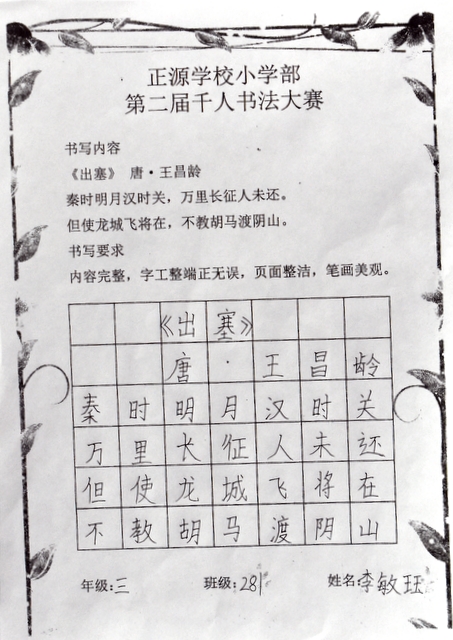 正源学校小学部
第二届千人书法大赛
书写内容
《出塞》 唐·王昌龄
秦时明月汉时关，万里长征人未还。
但使龙城飞将在，不教胡马渡阴山。
书写要求
内容完整，字工整端正无误，页面整洁，笔画美观。
《出塞》
唐·王昌龄
秦时明月汉时关
万里长征人未还
但使龙城飞将在
不教胡马渡阴山
年级:三 班级:281 姓名:李敏珏